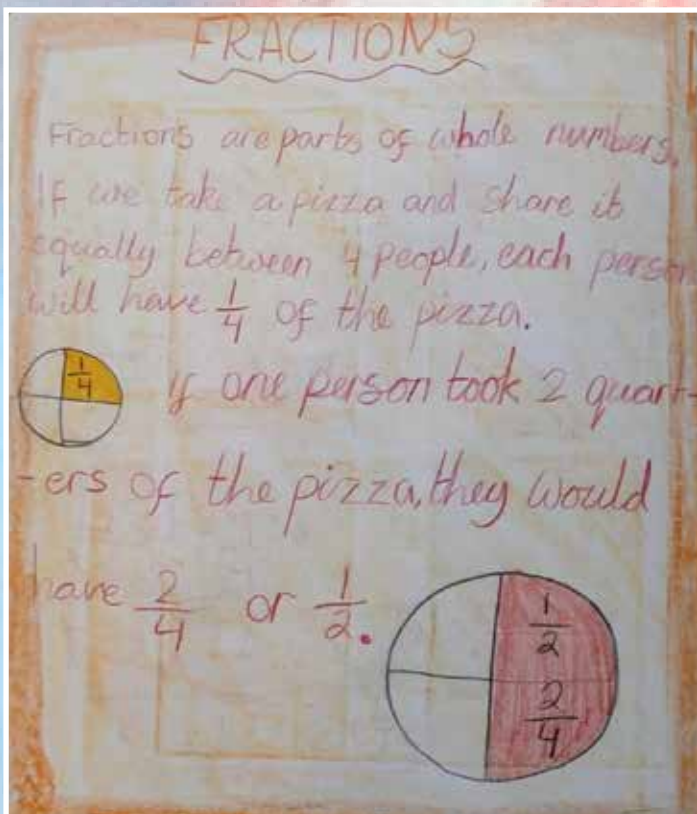 FRACTIONS
Fractions are parts of whole numbers.
If we take a pizza and share it
equally between 4 people, each person
will have 1/4 of the pizza.
1/4
If one person took 2 quart-
-ers of the pizza, they would
have 2/4 or 1/2.
1/2
2/4